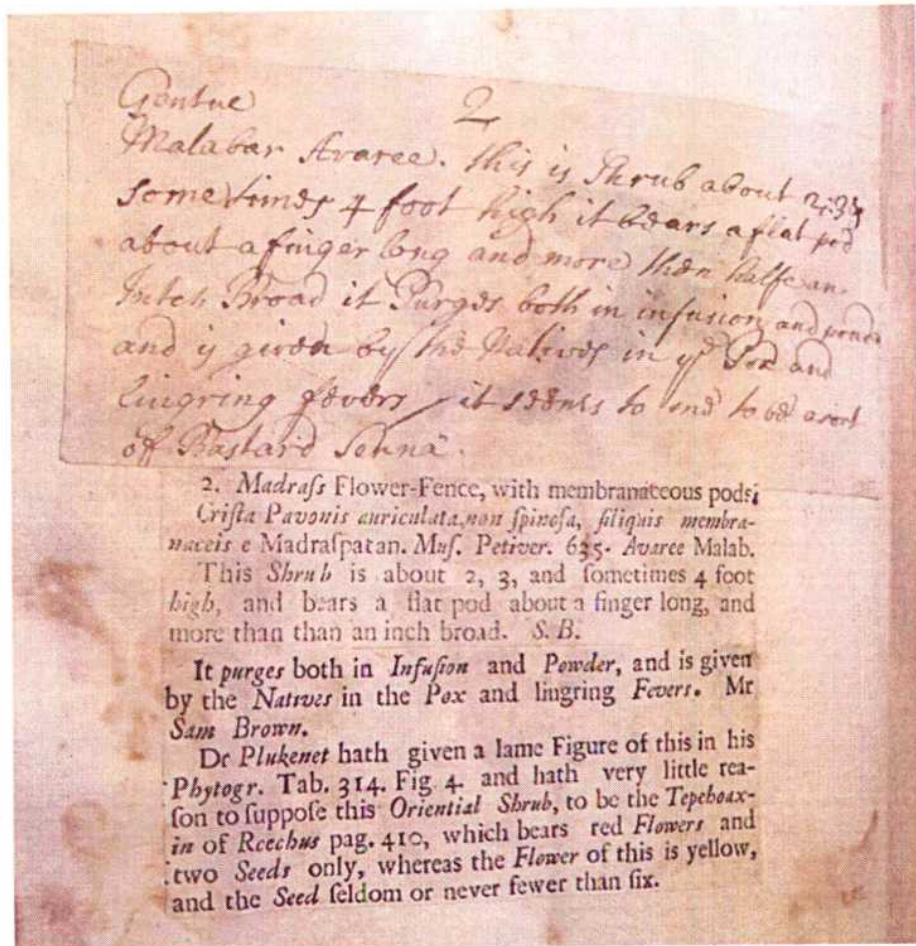 Gentue 2
Malabar Avaree. this is Shrub about 2:3 &
sometimes 4 foot high it bears a flat pod
about a finger long and more then halfe an
Intch Broad it Purges both in infusion and
and is given by the Natives in ye Pox and
lingring fevers / it seems to me to be a sort
off Bastard Senna.
2. Madraſs Flower-Fence, with membranateous pods;
Criſta Pavonis auriculata, non ſpinoſa, ſiliquis membra-
naceis e Madraſpatan. Muſ. Petiver. 635. Avaree Malab.
This Shrub is about 2, 3, and ſometimes 4 foot
high, and bears a flat pod about a finger long, and
more than than an inch broad. S. B.
It purges both in Infuſion and Powder, and is given
by the Natives in the Pox and lingring Fevers. Mr
Sam Brown.
Dr Plukenet hath given a lame Figure of this in his
Phytogr. Tab. 314. Fig. 4. and hath very little rea-
ſon to ſuppoſe this Oriential Shrub, to be the Tepehoax-
in of Reechus pag. 410, which bears red Flowers and
two Seeds only, whereas the Flower of this is yellow,
and the Seed ſeldom or never fewer than ſix.